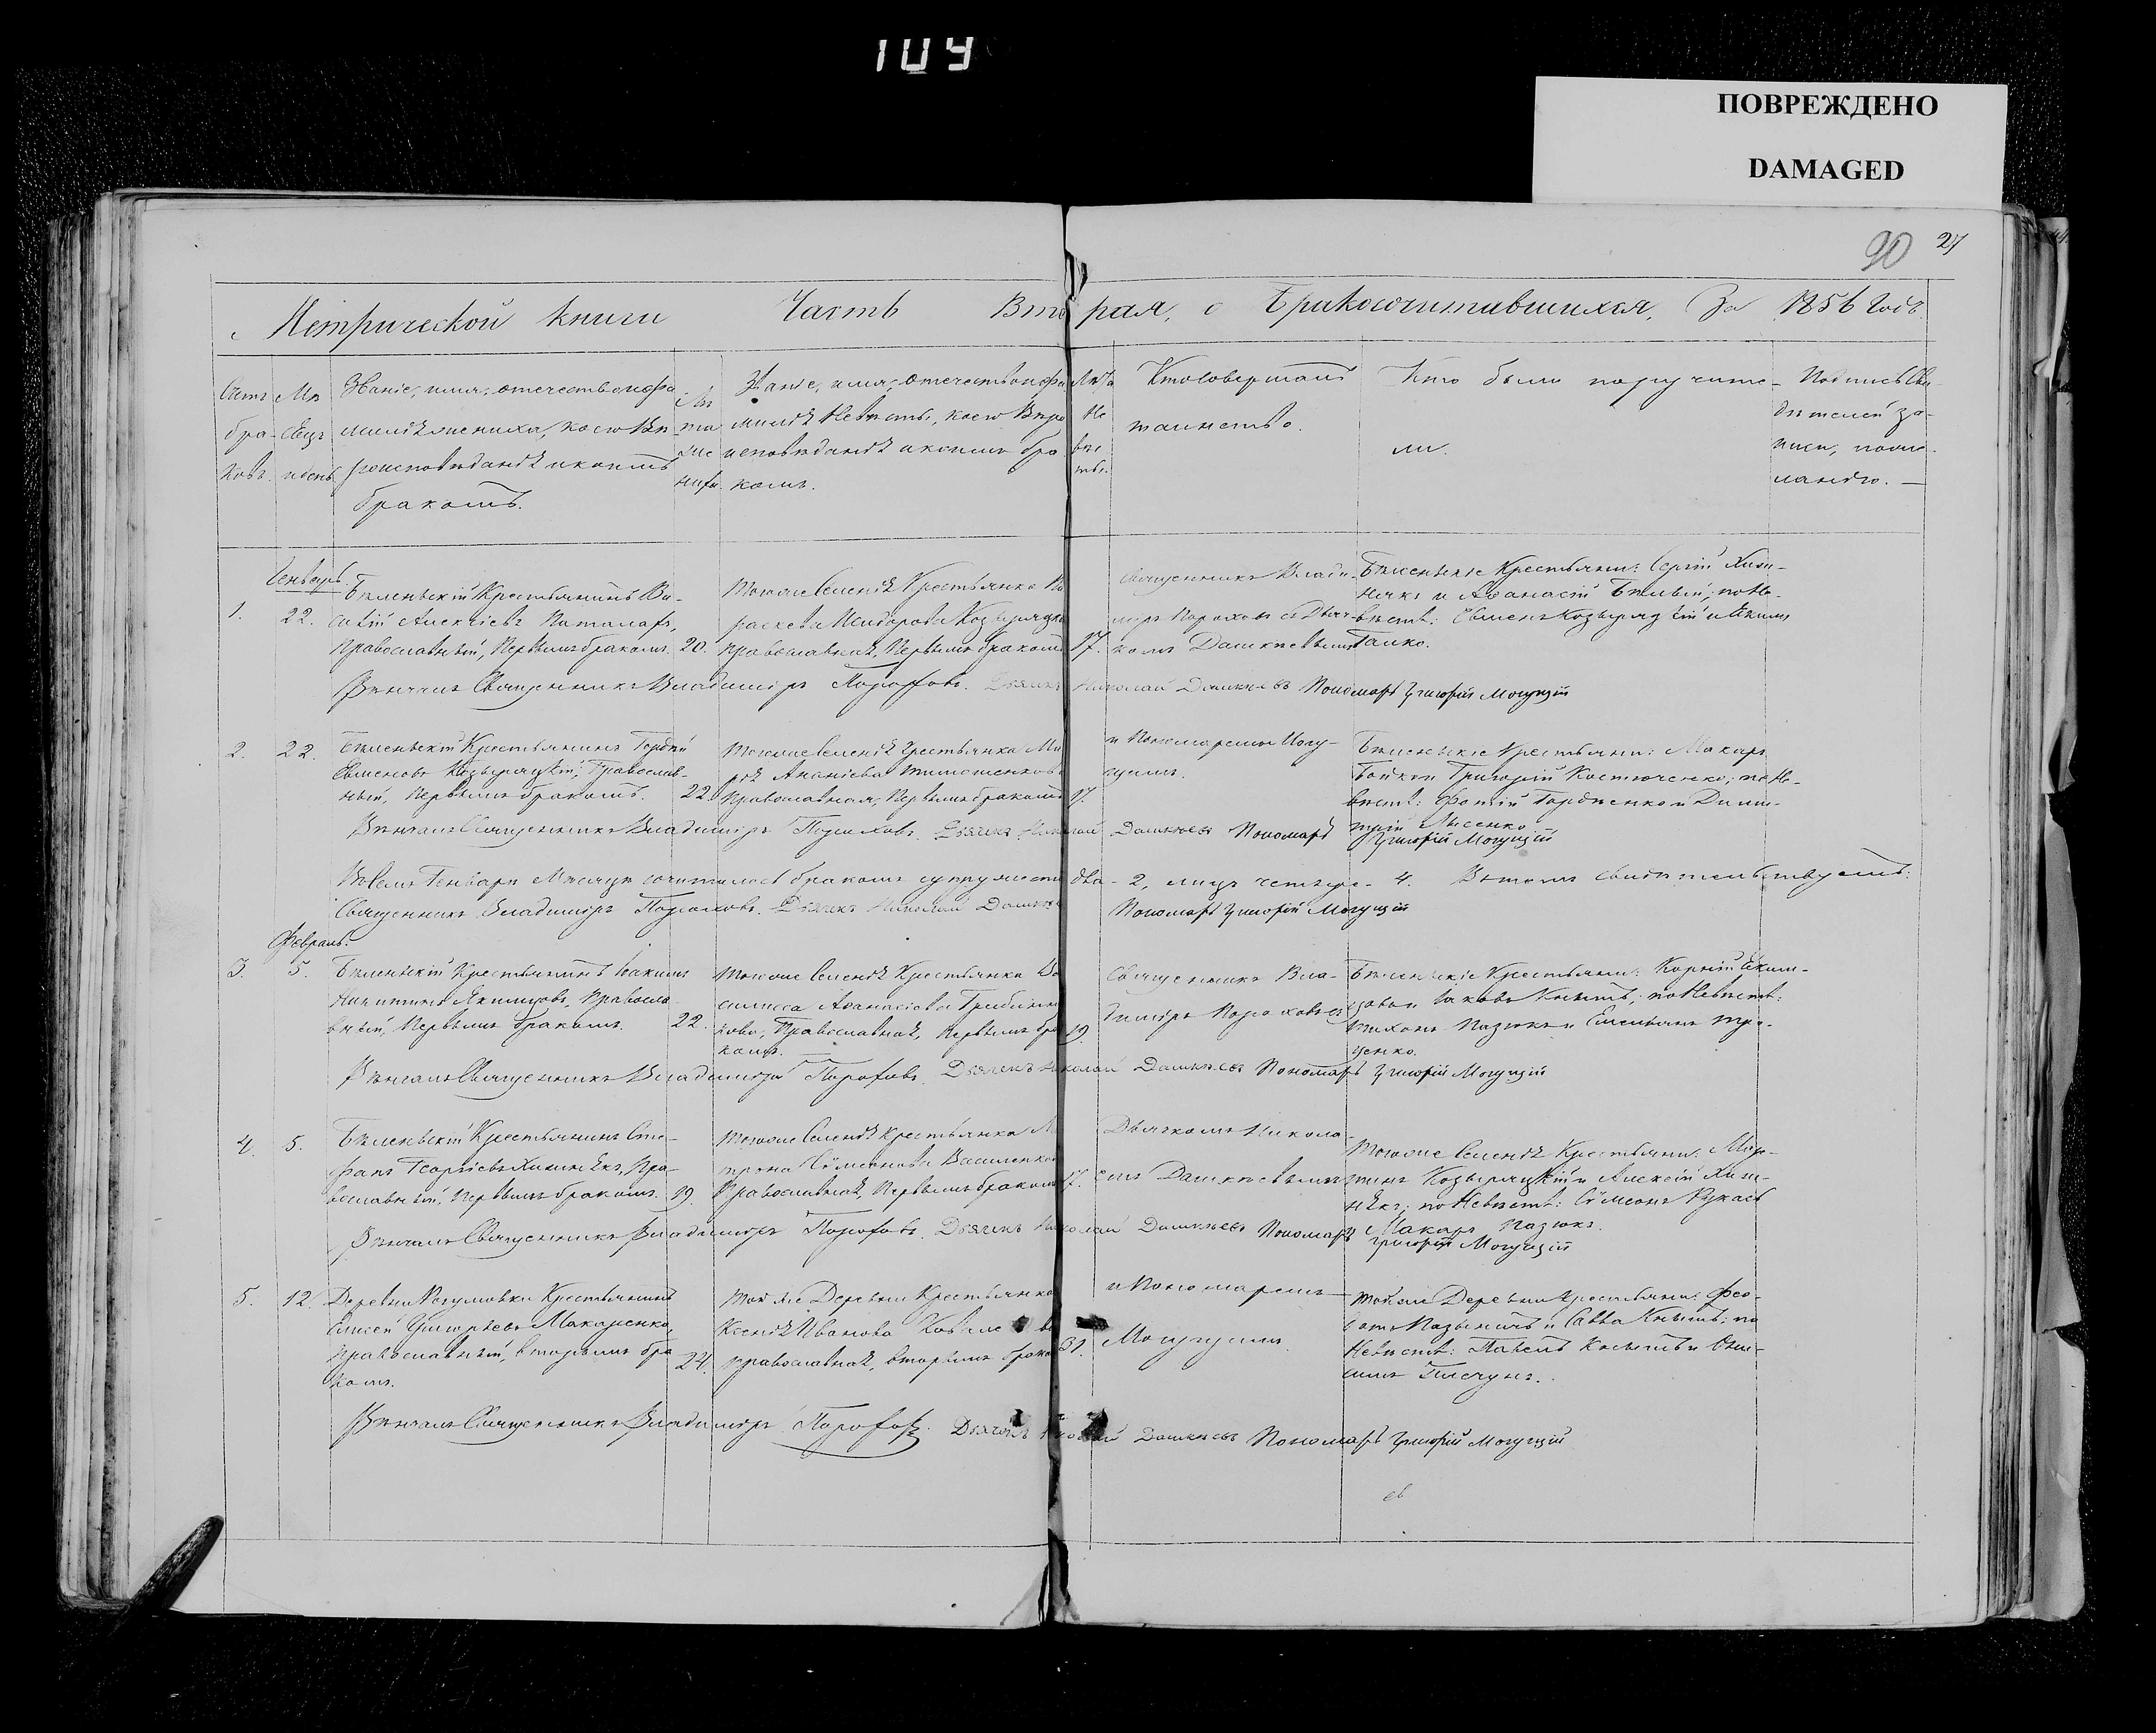 109
ПОВРЕЖДЕНО
DAMAGED
90 27
Метрической книги Часть Вторая, о Бракосочитавшихся, За 1856 Годъ.
Счетъ бра-ковъ.
Мѣ-сяцъ и день
Званіе, имя, отечество и фа-
миліѣ жениха, коего Вѣ-
роисповѣданіѣ и коимъ
бракомъ.
Лѣ-та же-ниха.
Званіе, имя, отечество и фа-
миліѣ Невѣсты, коего Вѣро
исповѣданіѣ и коимъ бра-
комъ.
Лѣта Не-вѣс-ты.
Кто совершалъ
таинство.
Кто были поручите-
ли.
Подпись Сви-
дѣтелей за-
писи, по же-
ланію.
Генварь.
1. 22.
Бѣленькій Крестьянинъ Ва-
силій Алексіевъ
Православный, Первымъ бракомъ. 20.
Тогоже Селеніѣ Крестьянка Па-
раскева
православнаѣ, Первымъ бракомъ 17.
Священникъ Влади-
міръ Пороховъ съ Дьяч-
комъ Дашкѣевымъ
Бѣленькіе Крестьяни: Сергій Хиж-
някъ и Афанасій Бѣлый, по Не-
вѣстѣ: Евменъ Козыряцкій и Якимъ
Галко.
Вѣнчалъ Священникъ Владиміръ Пороховъ. Дьячекъ Николай Дашкѣевъ Пономарь Григорій Могуцзій
2. 22.
Бѣленькій Крестьянинъ Гордѣй
Евменовъ Козыряцкій, Православ-
ный, Первымъ бракомъ. 22.
Тогоже Селеніѣ Крестьянка Ма
ріѣ Ананіева Тимошенкова
Православная, Первымъ бракомъ 17.
и Пономаремъ Могу-
цимъ.
Бѣленькіе Крестьяни: Макаръ
Бойко и Григорій Костюченко; по Не-
вѣстѣ: Фотій Гордѣенко и Дими-
трій Лысенко
Вѣнчалъ Священникъ Владиміръ Пороховъ. Дьячекъ Николай Дашкѣевъ Пономарь Григорій Могуцзій
Всемъ Генварѣ Мѣсяцѣ сочиталось бракомъ супружествъ два - 2, лицъ четыре - 4. Въ томъ свидѣтельствуемъ:
Священникъ Владиміръ Пороховъ. Дьячекъ Николай Дашкѣевъ Пономарь Григорій Могуцзій
Февраль.
3. 5.
Бѣленькій Крестьянинъ Іоакимъ
Никитинъ Якимцовъ, Правосла-
вный, Первымъ бракомъ. 22.
Тогоже Селеніѣ Крестьянка Ва
силисса Афанасіева
Православнаѣ, Первымъ бра 19.
комъ.
Священникъ Вла-
диміръ Пороховъ съ
Бѣленькіе Крестьяни: Корній Яким-
цовъ и Іаковъ Кнышъ; по Невѣстѣ:
Тихонъ Пазюкъ и Емельянъ Тро-
ценко.
Вѣнчалъ Священникъ Владиміръ Пороховъ. Дьячекъ Николай Дашкѣевъ Пономарь Григорій Могуцзій
4. 5.
Бѣленькій Крестьянинъ Сте-
фанъ Георгіевъ Хижнѣкъ, Пра-
вославный, Первымъ бракомъ. 19.
Тогоже Селеніѣ Крестьянка М
трона Сѵмеонова Василенкова
Православнаѣ, Первымъ бракомъ 17.
Дьячкомъ Никола-
емъ Дашкѣевымъ
Тогоже Селеніѣ Крестьяни: Мар-
тинъ Козыряцкій и Алексій Хиж-
нѣкъ; по Невѣстѣ: Сѵмеонъ
Макаръ Пазюкъ.
Вѣнчалъ Священникъ Владиміръ Пороховъ. Дьячекъ Николай Дашкѣевъ Пономарь Григорій Могуцзій
5. 12.
Деревни Разумовки Крестьянинъ
Елисей Григорьевъ Макаренко,
православный, вторымъ бра 24.
комъ.
Той же Деревни Крестьянка
Ксеніѣ Иванова
православнаѣ, вторымъ брако 31.
и Пономаремъ
Могуцимъ.
Той же Деревни Крестьяни: Фео-
и Савва Кнышъ; по
Невѣстѣ: Павелъ и Они-
симъ
Вѣнчалъ Священникъ Владиміръ Пороховъ. Дьячекъ Николай Дашкѣевъ Пономарь Григорій Могуцзій